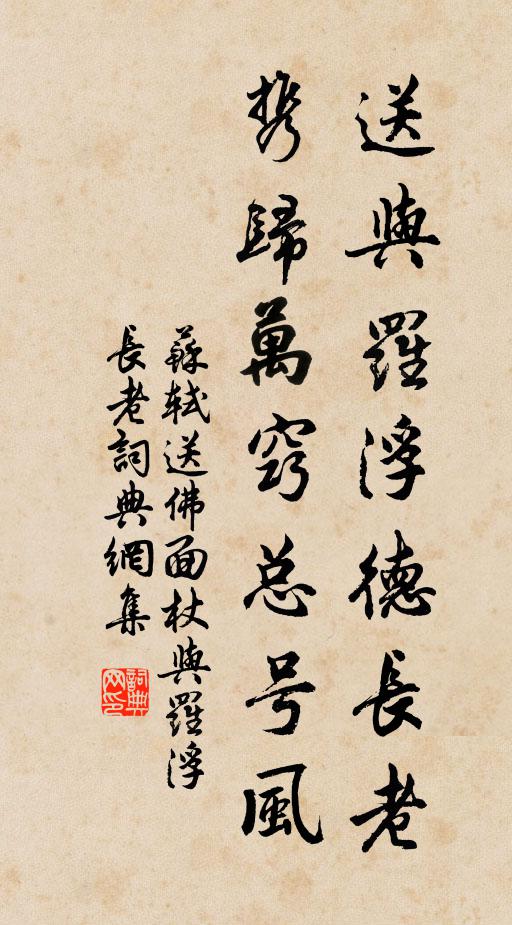 送與羅浮德長老
携歸萬窍总号風
蘇軾送佛面杖與羅浮
長老詞典網集
詞典网印